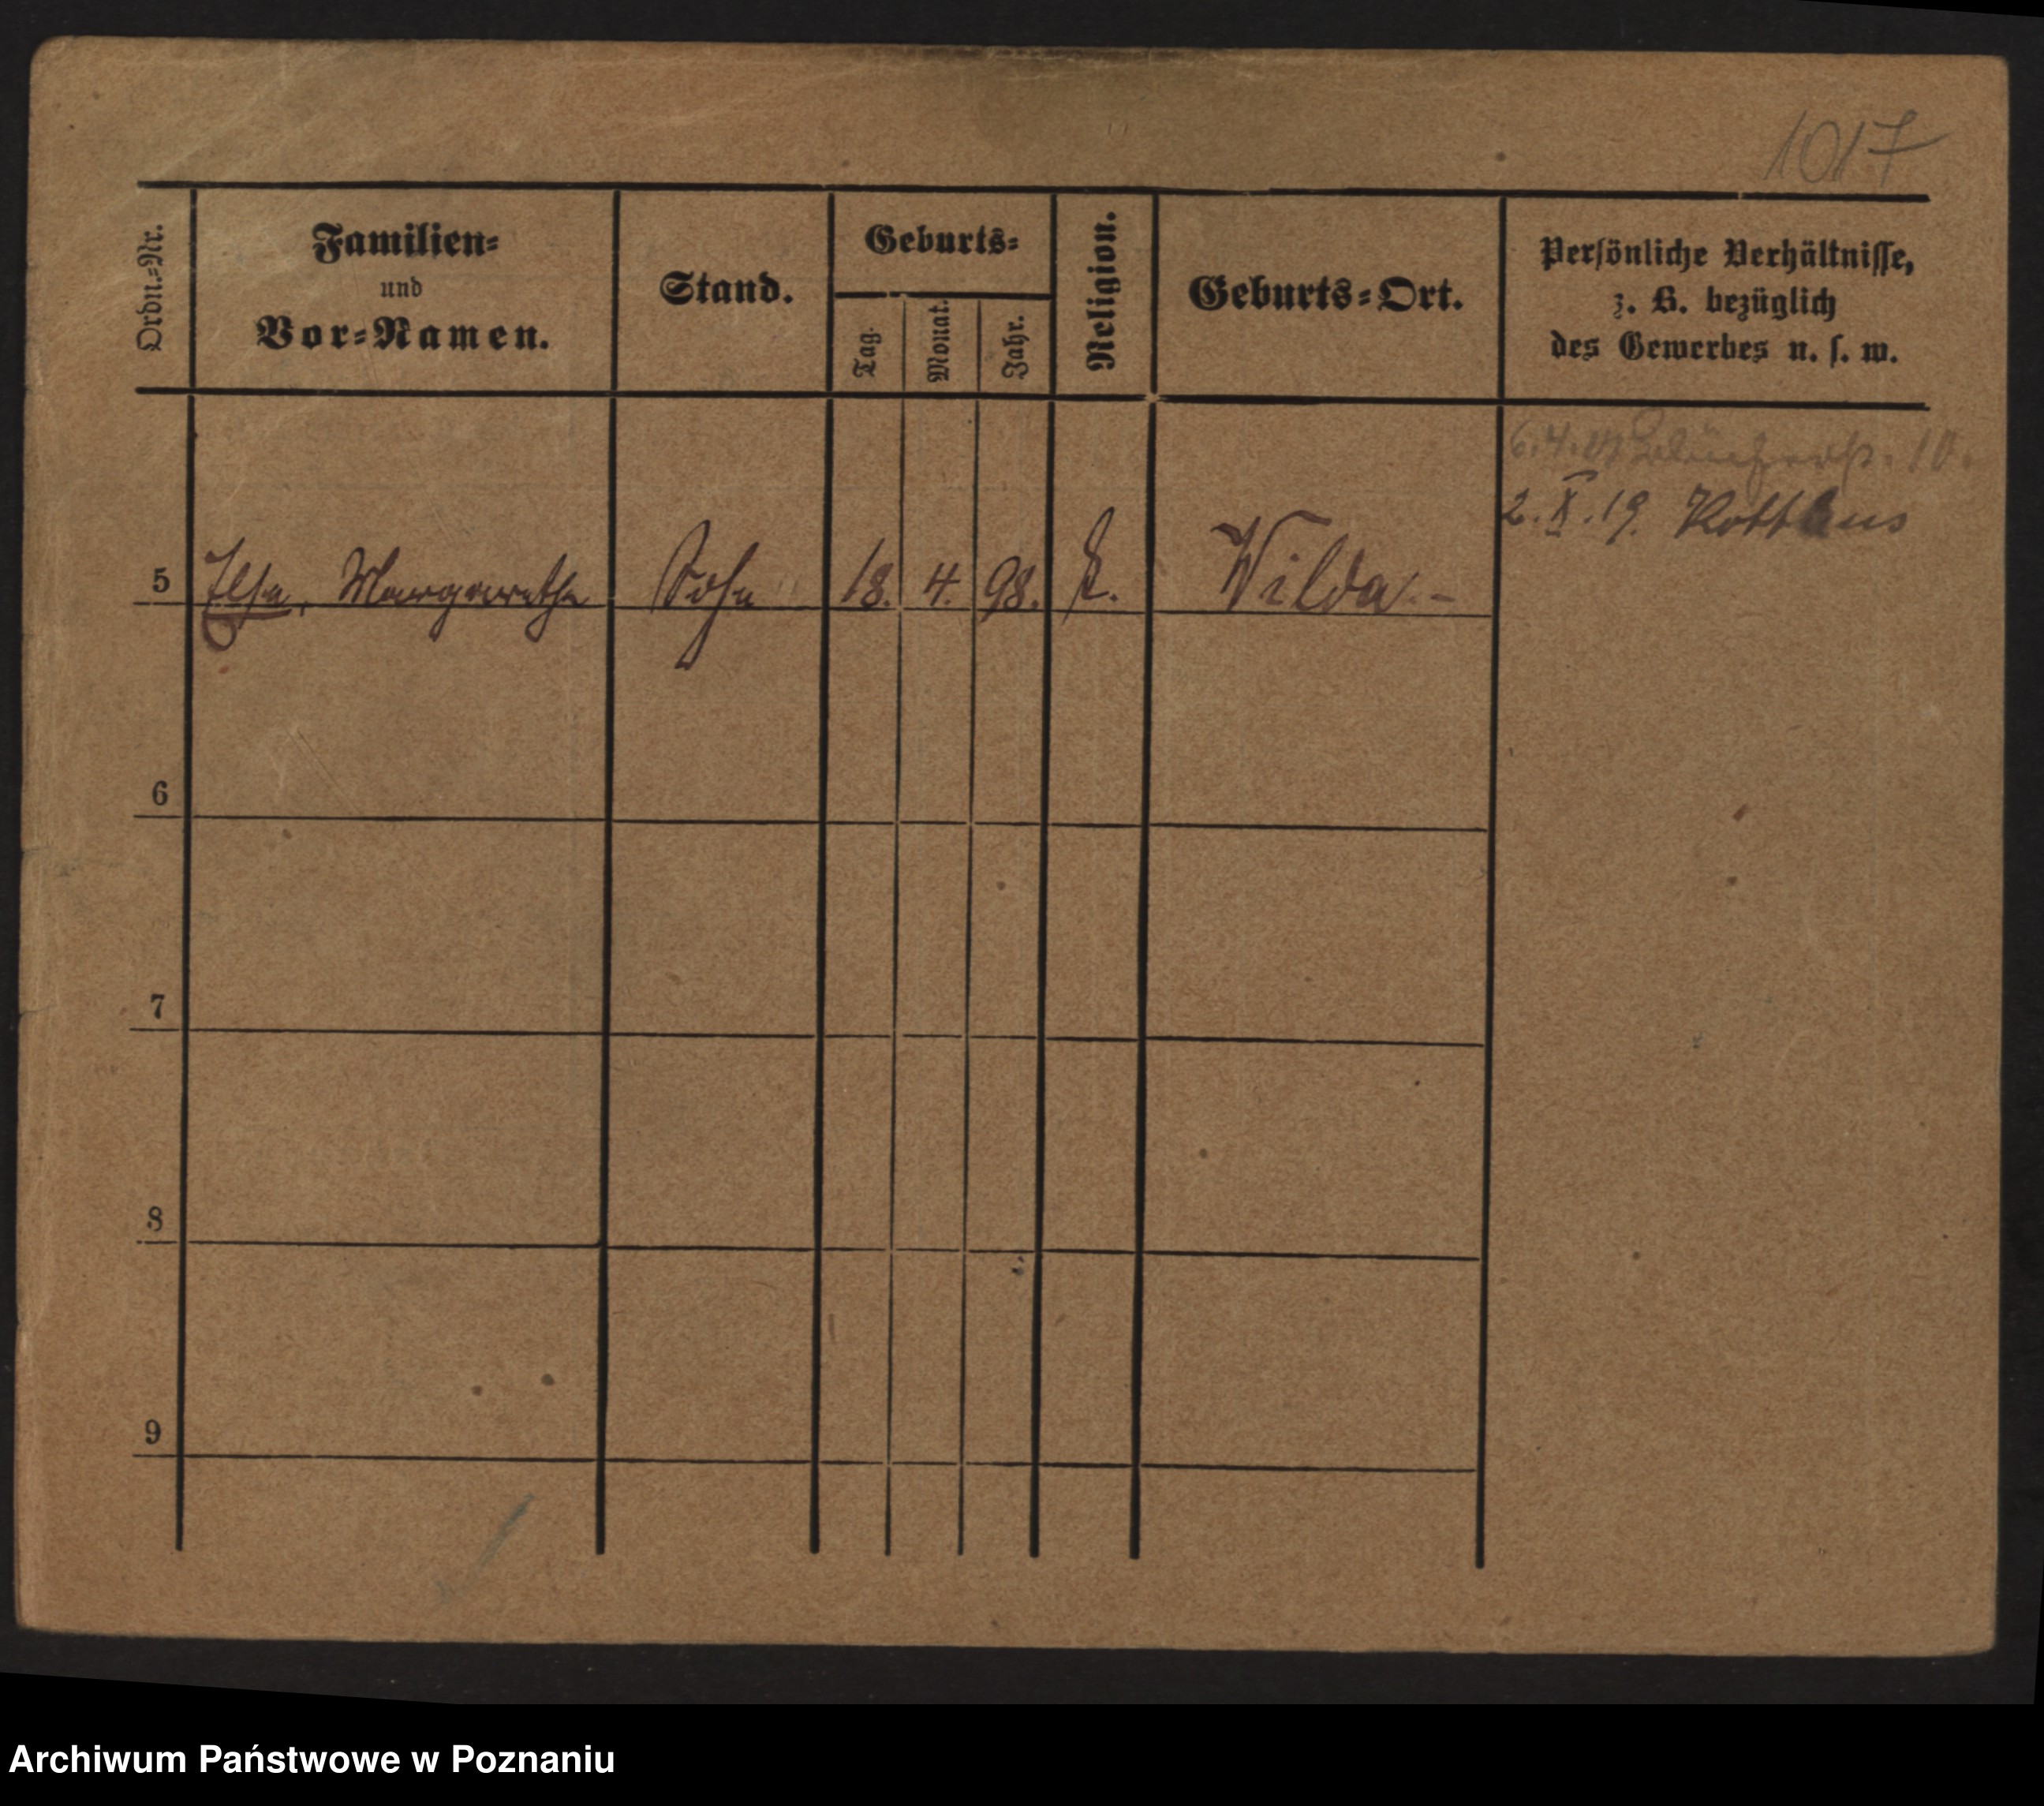 1017
Ordn.-Nr.
Familien-
und
Vor-Namen.
Stand.
Geburts-
Tag.
Monat.
Jahr.
Religion.
Geburts-Ort.
Persönliche Verhältnisse,
z. B. bezüglich
des Gewerbes u. s. w.
6.4. 10.
2.X.19. Kottbus
5 Else, Margarethe 18. 4. 98. Wilda.-
6
7
8
9
Archiwum Państwowe w Poznaniu